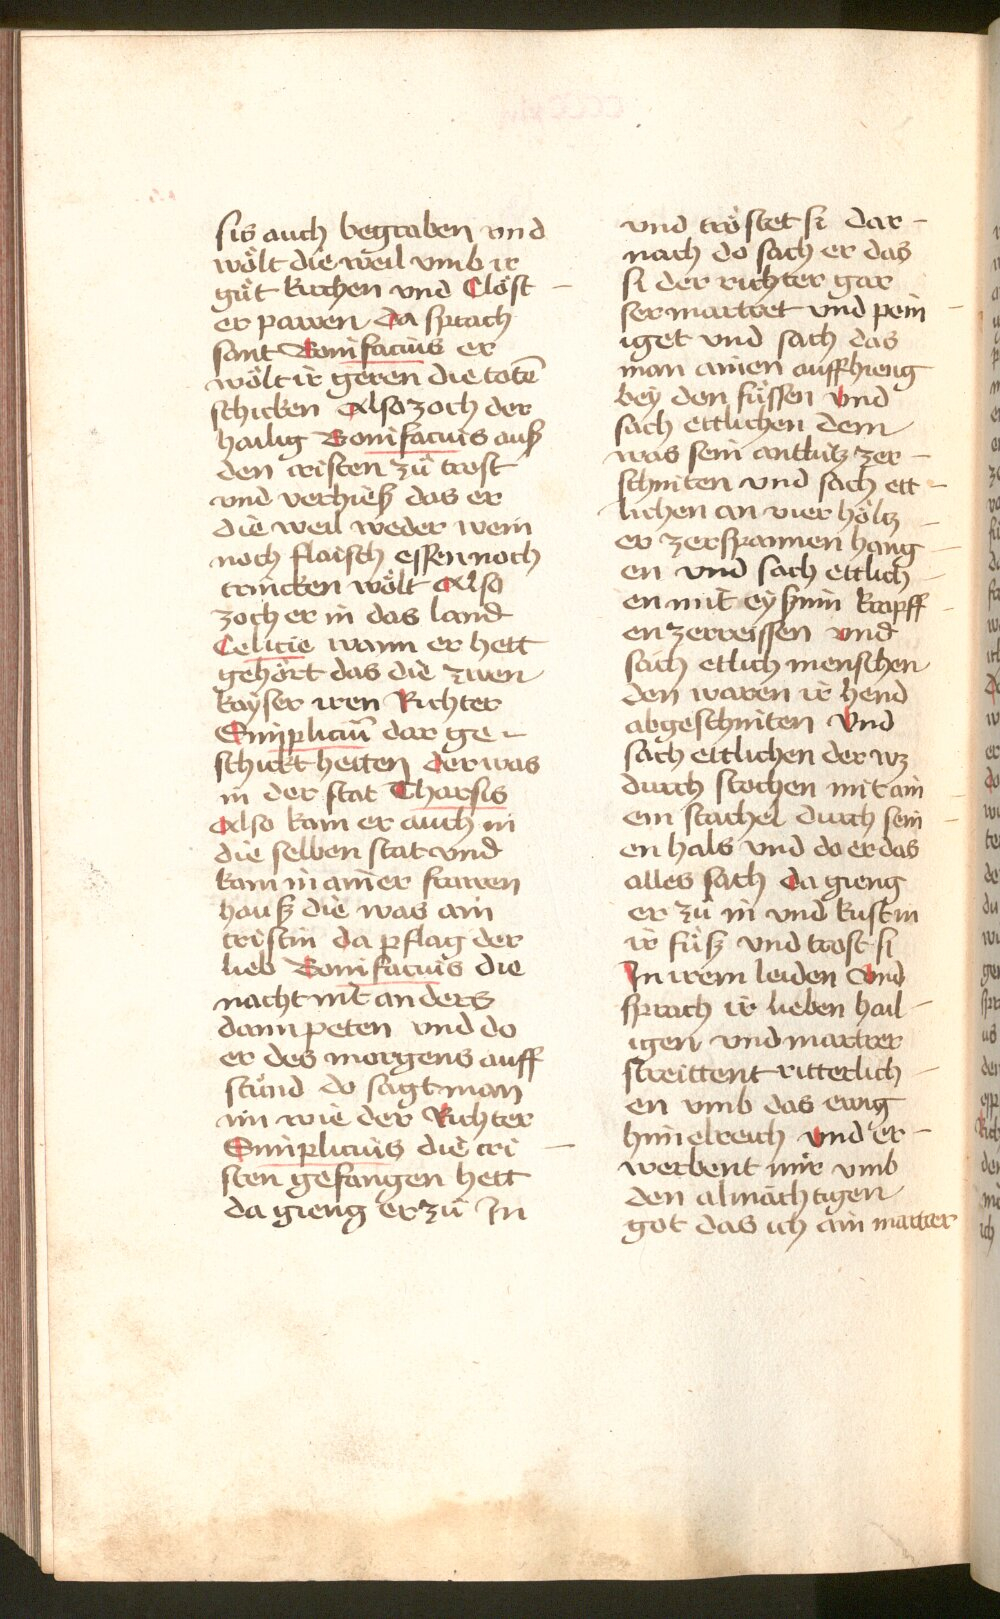 sis auch begraben vnd
wölt die weil vmb ir
güt kirchen vnd Clöst –
er pawen Da sprach
sant Bonifacius er
wölt ir geren die totē
schicken Also zoch der
hailig Bonifacius auß
den cristen zů trost
vnd verhieß das er
die weil weder wein
noch flaisch essen noch
trincken wölt Also
zoch er in das land
Celicie wann er hett
gehört das die zwen
kayser iren Richter
Simpliciū dar ge –
schickt hetten Der was
in der stat Tharsis
Also kam er auch in
die selben stat vnd
kam in ainer frawen
hauß die was ain
cristin da pflag der
lieb Bonifacius die
nacht nit anders
dann peten vnd do
er des morgens auff
stůnd do sagt man
im wie der Richter
Simplicius die cri –
sten gefangen hett
da gieng er zů In
vnd tröstet si dar –
nach do sach er das
si der richter gar
ser martret vnd pein –
iget vnd sach das
man ainen auffhieng
bey den füssen Vnd
sach ettlichen dem
was sein antlütz zer –
schniten vnd sach ett –
lichen an vier höltz –
er zerspannen hang –
en vnd sach ettlich –
en mit eyßnin krapff –
en zerreissen vnd
sach etlich menschen
den waren ir hend
abgeschniten Vnd
sach ettlichen der wz
durch stochen mit ain –
em stachel durch sein –
en hals vnd do er das
alles sach Da gieng
er zů in vnd kust in
ir füß vnd trost si
In irem leiden Vnd
sprach ir lieben hail –
igen vnd martrer
streittent ritterlich –
en vmb das ewig
himelreich vnd er –
werbent mir vmb
den almächtigen
got das ich ain martrer